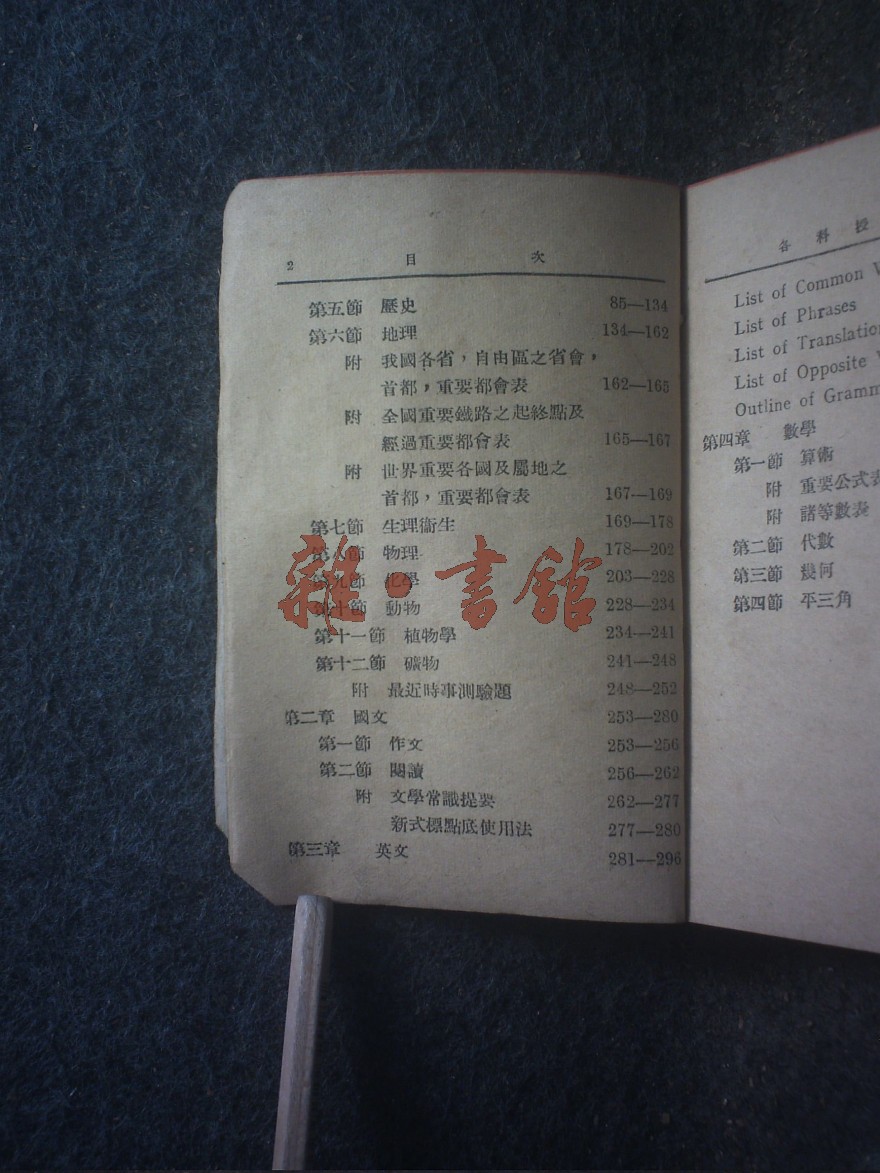 2 目 次
第五節 歷史 85—134
第六節 地理 134—162
附 我國各省，自由區之省會，
首都，重要都會表 162—165
附 全國重要鐵路之起終點及
經過重要都會表 165—167
附 世界重要各國及屬地之
首都，重要都會表 167—169
第七節 生理衞生 169—178
第八節 物理 178—202
第九節 化學 203—228
第十節 動物 228—234
第十一節 植物學 234—241
第十二節 礦物 241—248
附 最近時事測驗題 248—252
第二章 國文 253—280
第一節 作文 253—256
第二節 閱讀 256—262
附 文學常識提要 262—277
新式標點底使用法 277—280
第三章 英文 281—296
雜·書館
各 科 授
List of Common
List of Phrases
List of Translation
List of Opposite
Outline of Gramm
第四章 數學
第一節 算術
附 重要公式表
附 諸等數表
第二節 代數
第三節 幾何
第四節 平三角